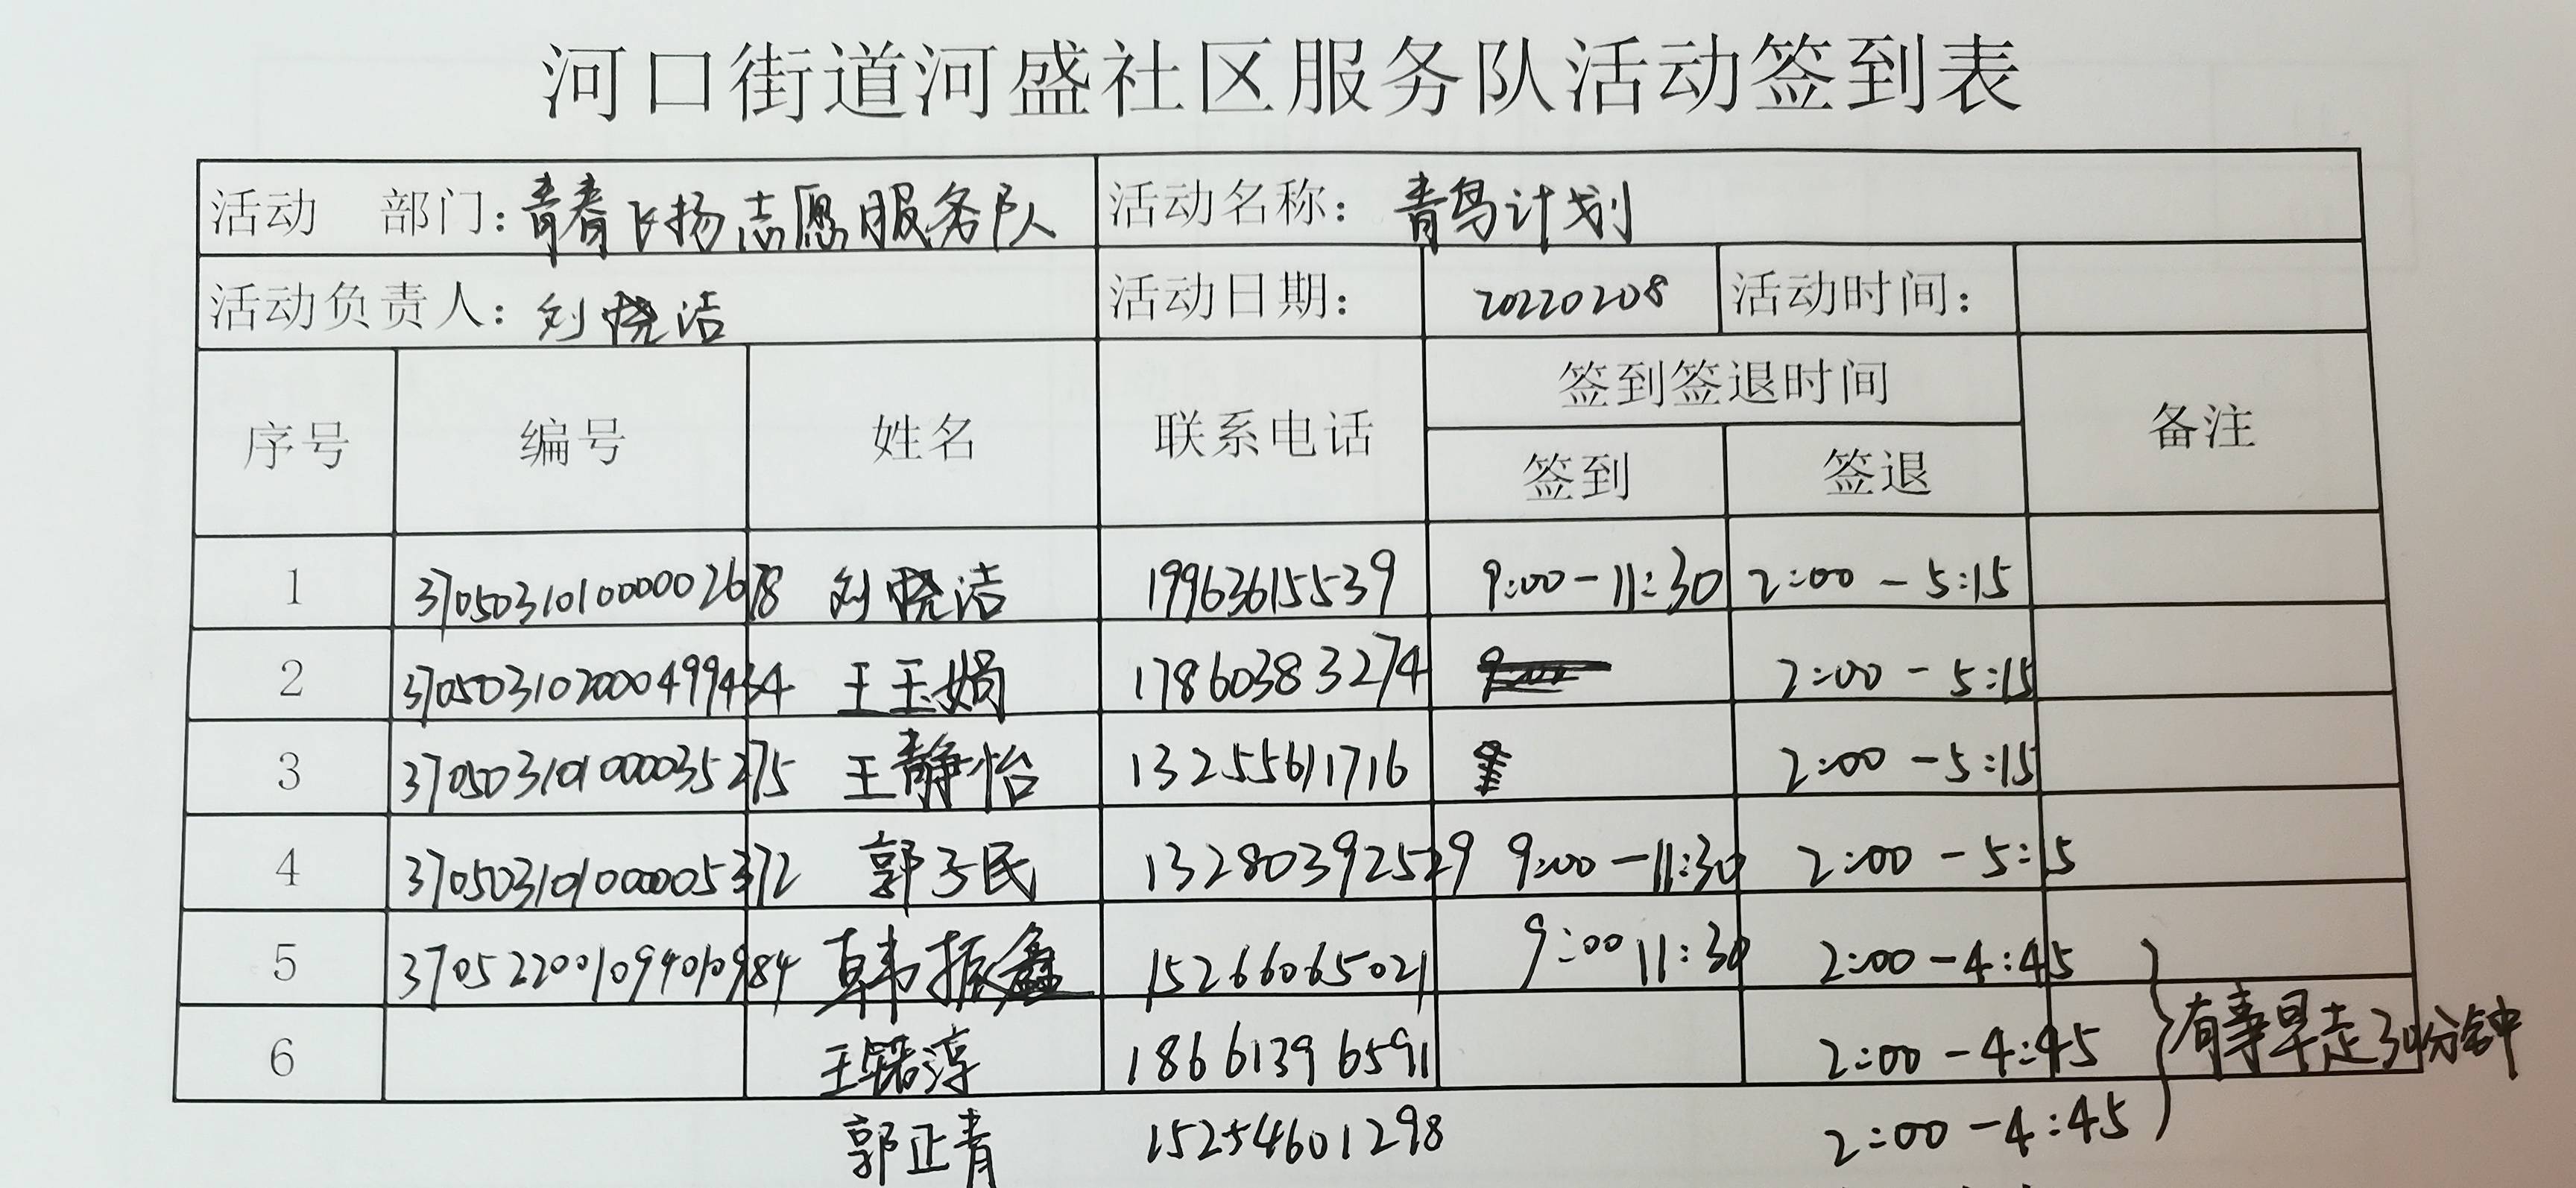 河口街道河盛社区服务队活动签到表
活动 部门：青春飞扬志愿服务队 活动名称：青鸟计划
活动负责人：刘晓洁 活动日期： 20220208 活动时间：
签到签退时间
序号 编号 姓名 联系电话 备注
签到 签退
1 370503101000002678 刘晓洁 19963615539 9:00-11:30 2:00-5:15
2 370503102000499434 王玉娟 17860383274 2:00-5:15
3 370503101000035275 王静怡 13255611716 2:00-5:15
4 370503101000005372 郭子民 13280392529 9:00-11:30 2:00-5:15
5 370522001094010984 韩振鑫 15266065021 9:00 11:30 2:00-4:45
有事早走30分钟
6 王淳 18661396591 2:00-4:45
郭正青 15254601298 2:00-4:45